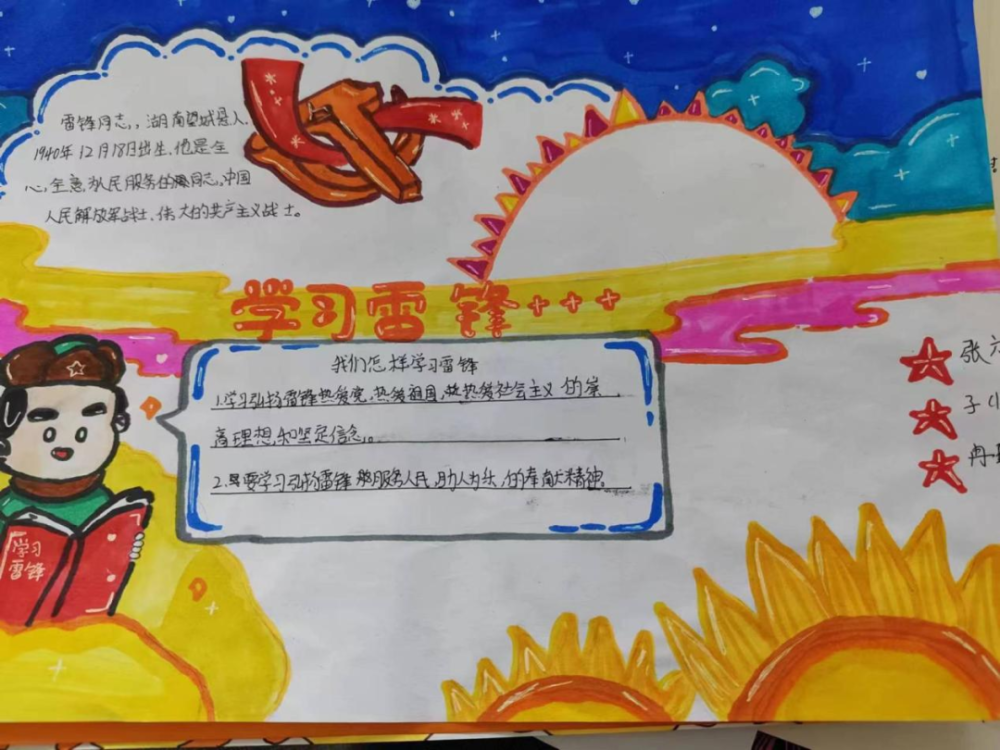 雷锋同志,,湖南望城县人,
1940年12月18日出生,他是全
心,全意为人民服务的同志,中国
人民解放军战士、伟大的共产主义战士。
学习雷锋+++
我们怎样学习雷锋
1.学习弘扬雷锋热爱党,热爱祖国,热爱社会主义的崇
高理想,和坚定信念。
2.要学习弘扬雷锋服务人民,助人为乐,的奉献精神。
学习
雷锋
张
子小
冉